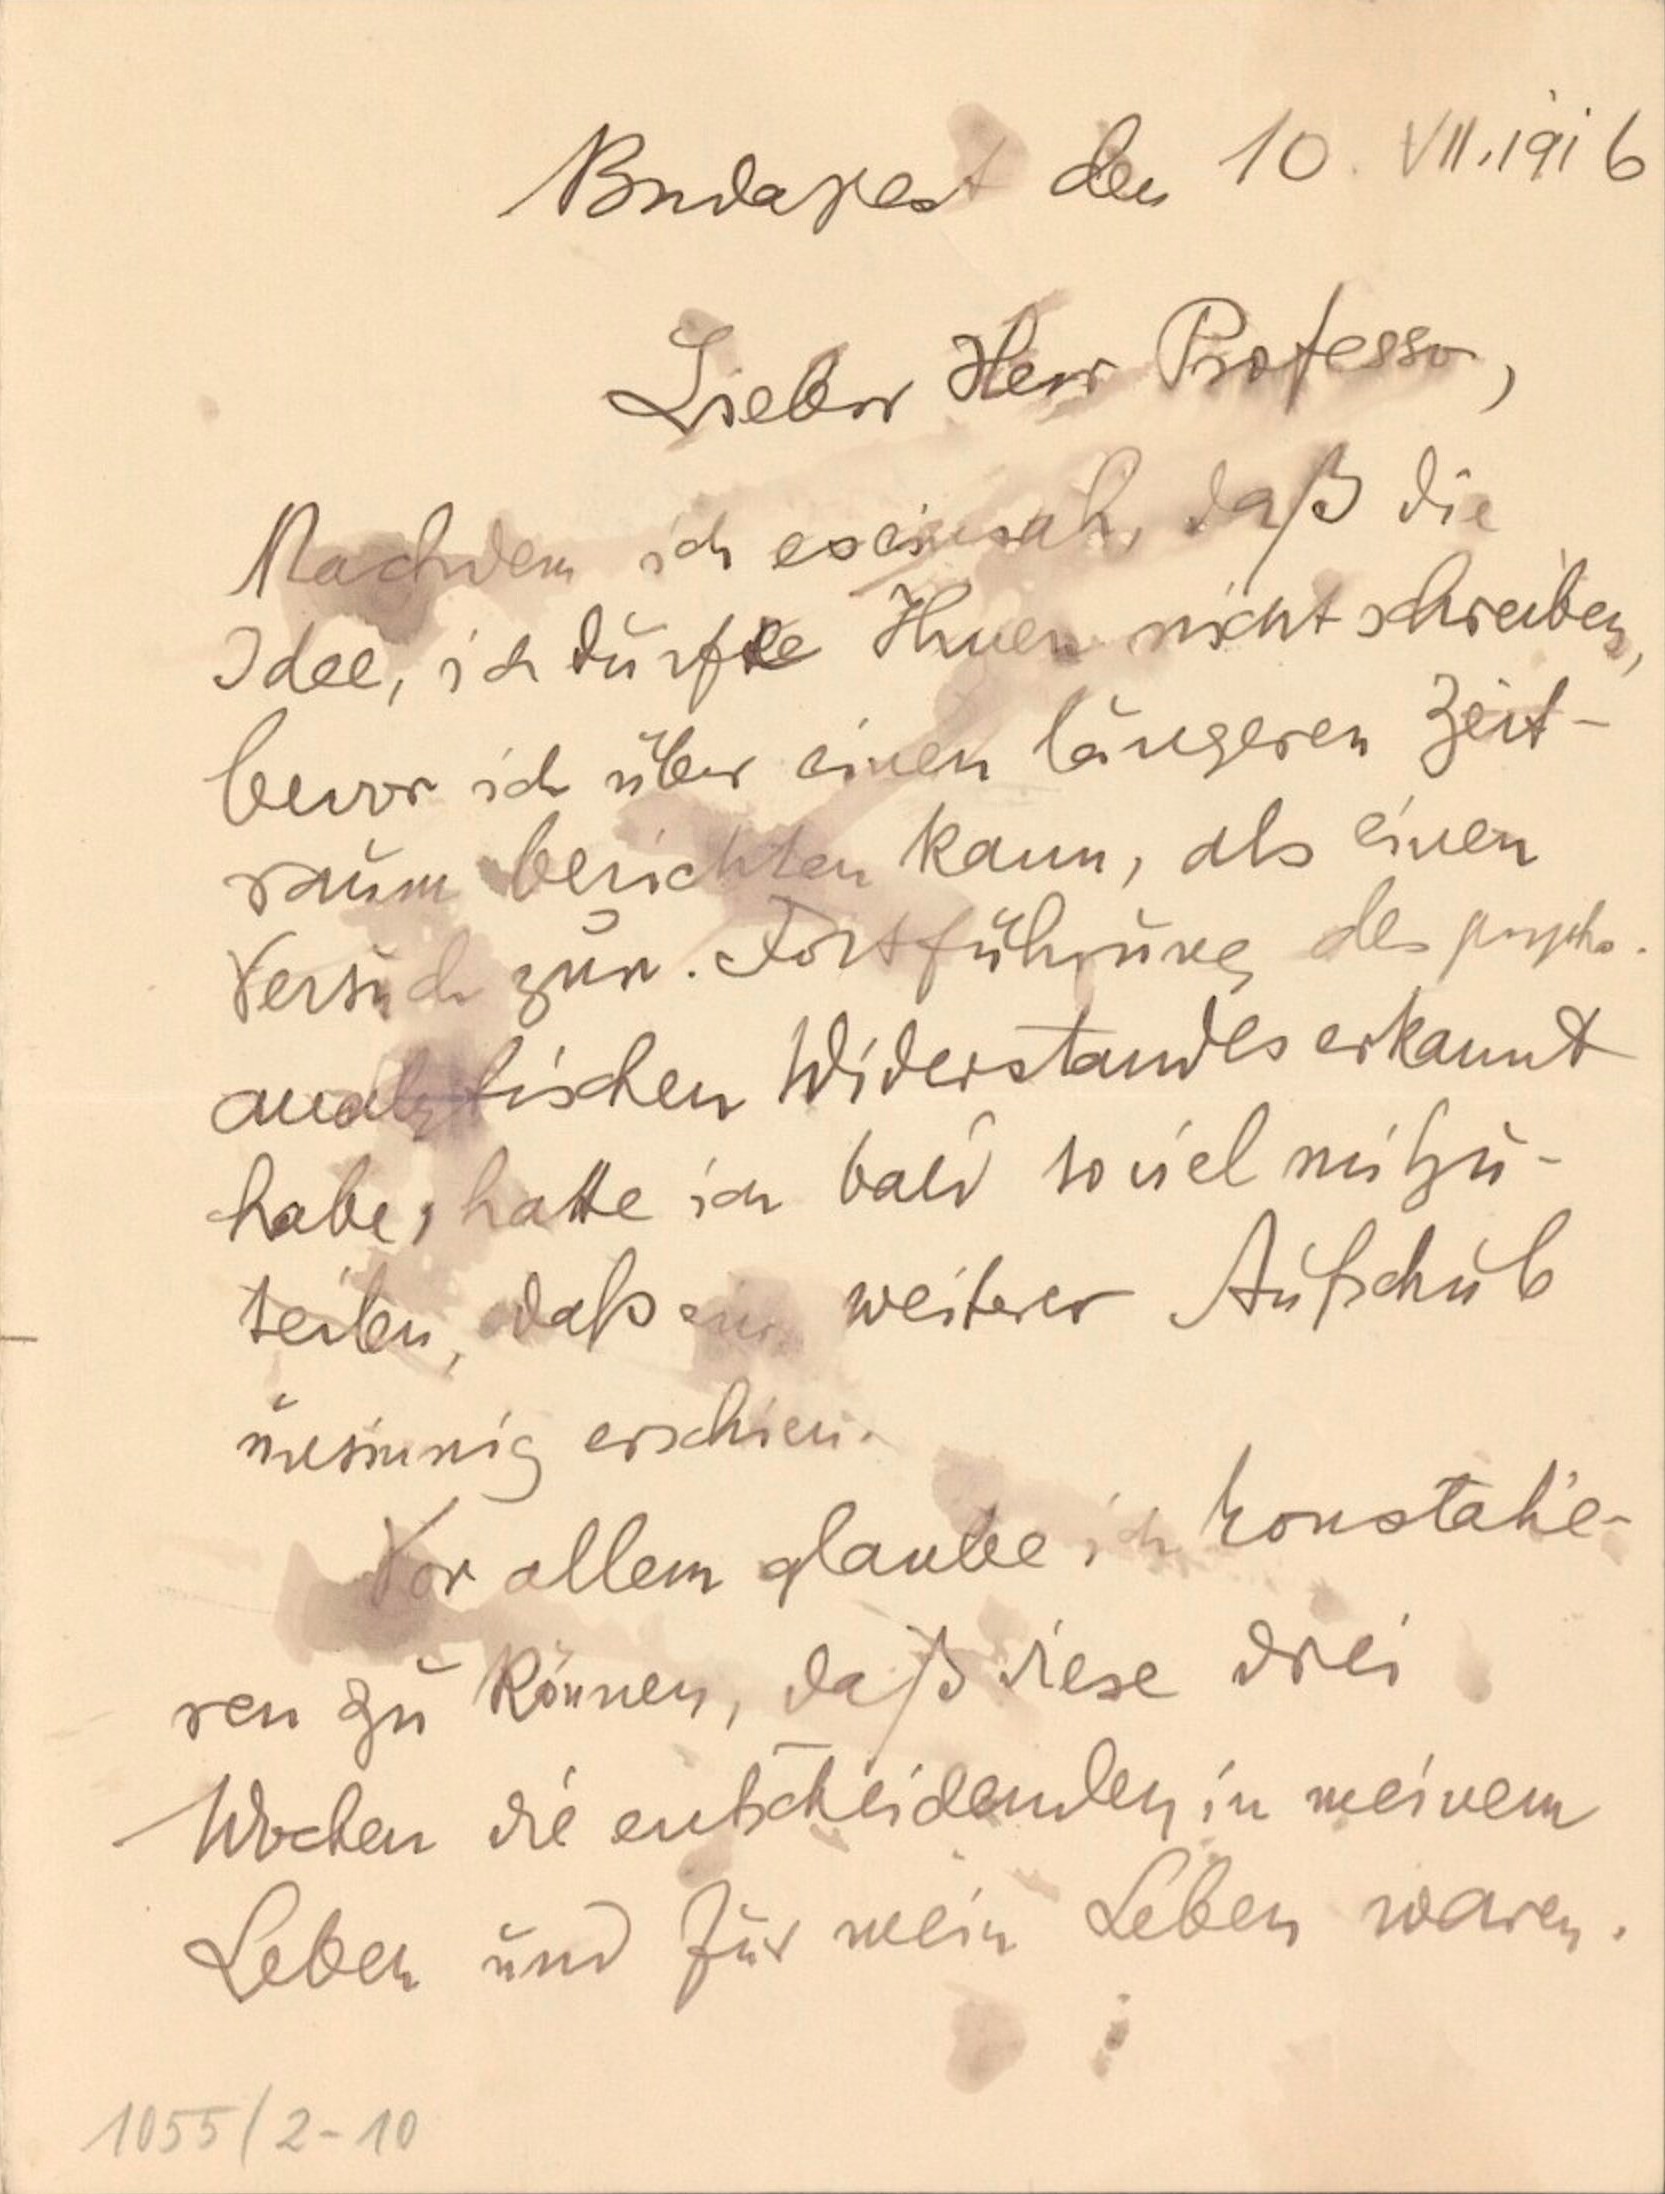 Budapest den 10. VII. 1916
Lieber Herr Professor,
Nachdem ich es einsah, daß die
Idee, ich dürfte Ihnen nicht schreiben,
bevor ich über einen längeren Zeit-
raum berichten kann, als einen
Versuch zur Fortführung des psycho-
analytischen Widerstandes erkannt
habe, hatte ich bald so viel mitzu-
teilen, daß ein weiterer Aufschub
unsinnig erschien.
Vor allem glaube ich konstatie-
ren zu können, daß diese drei
Wochen die entscheidenden in meinem
Leben und für mein Leben waren.
1055/2-10